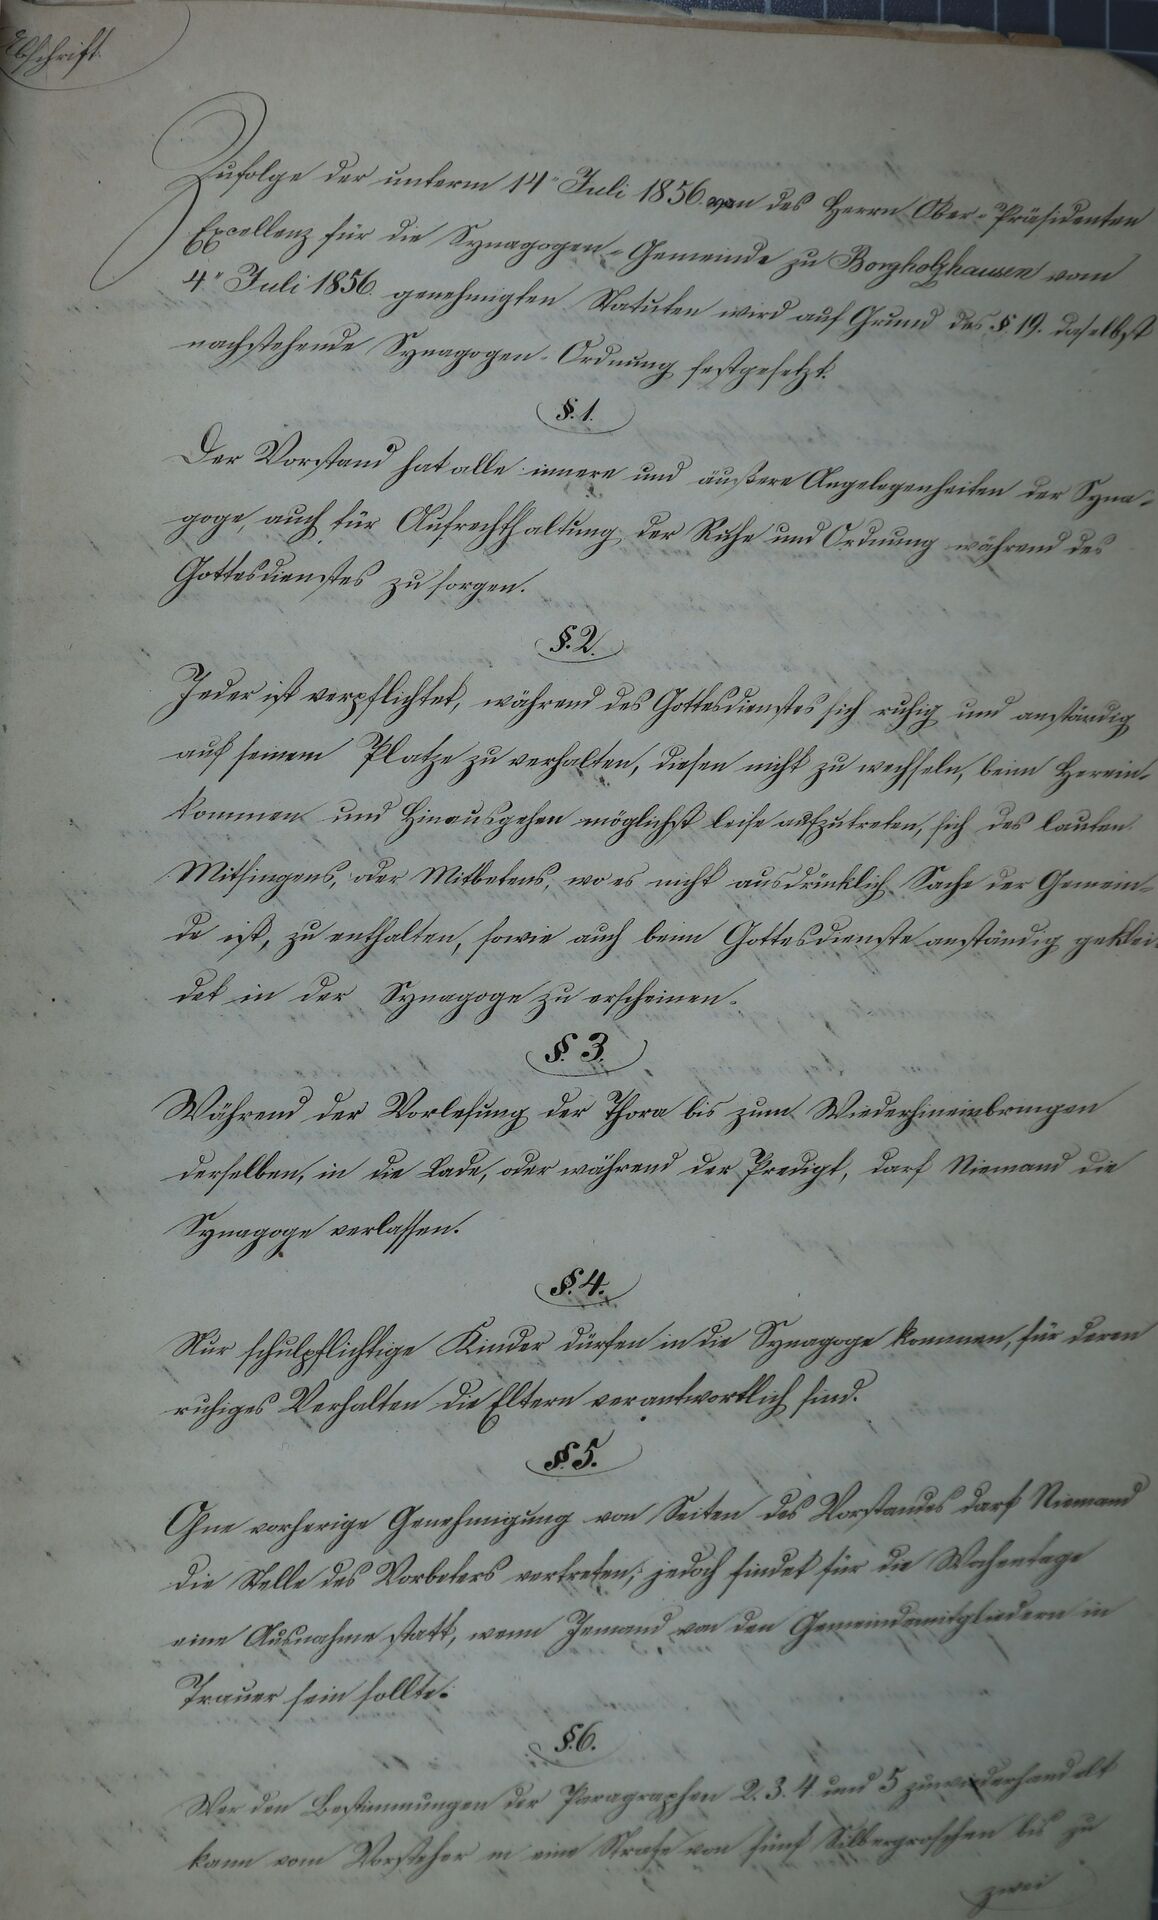 Abschrift.
Zufolge der unterm 14" Juli 1856. von des Herrn Ober-Präsidenten
Excellenz für die Synagogen-Gemeinde zu Borgholzhausen vom
4" Juli 1856. genehmigten Statuten wird auf Grund des § 19. daselbst
nachstehende Synagogen-Ordnung festgesetzt.
§. 1.
Der Vorstand hat alle innere und äußere Angelegenheiten der Syna-
goge, auch für Aufrechthaltung der Ruhe und Ordnung während des
Gottesdienstes zu sorgen.
§. 2.
Jeder ist verpflichtet, während des Gottesdienstes sich ruhig und anständig
auf seinem Platze zu verhalten, diesen nicht zu wechseln, beim Herein-
kommen und Hinausgehen möglichst leise aufzutreten, sich des lauten
Mitsingens, oder Mitbetens, wo es nicht ausdrücklich Sache der Gemein-
de ist, zu enthalten, sowie auch beim Gottesdienste anständig geklei-
det in der Synagoge zu erscheinen.
§. 3.
Während der Vorlesung der Thora bis zum Wiederhineinbringen
derselben, in die Lade, oder während der Predigt, darf Niemand die
Synagoge verlassen.
§. 4.
Nur schulpflichtige Kinder dürfen in die Synagoge kommen, für deren
ruhiges Verhalten die Eltern verantwortlich sind.
§. 5.
Ohne vorherige Genehmigung von Seiten des Vorstandes darf Niemand
die Stelle des Vorbeters vertreten; jedoch findet für die Wochentage
eine Ausnahme statt, wenn Jemand von den Gemeindemitgliedern in
Trauer sein sollte.
§. 6.
Wer den Bestimmungen der Paragraphen 2. 3. 4 und 5 zuwiderhandelt
kann vom Vorsteher in eine Strafe von fünf Silbergroschen bis zu
zwei